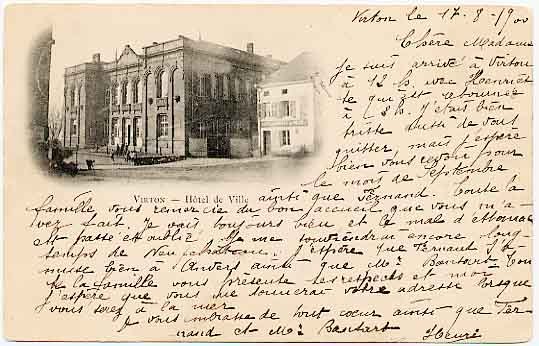 Virton le 17-8-1900
Chère Madame
Je suis arrivé à Virton
à 12 h. avec Henriet
te qui est
à 2 h. J'étais bien
triste aussi de vous
quitter, mais j'espère
bien vous revoir pour
le mois de Septembre
VIRTON — Hôtel de Ville
ainsi que Fernand. Toute la
famille vous remercie du bon accueil que vous m'a-
vez fait. Je vais toujours bien et le mal d'estomac
est passé et oublié. Je me souviendrai encore long-
temps de Neufchâteau. J'espère que Fernand s'a-
muse bien à Anvers ainsi que Mr Bantart. Tou
te la famille vous présente ses respects et moi
j'espère que vous me donnerai votre adresse lorsque
vous serez à la mer
Je vous embrasse de tout cœur ainsi que Fer-
nand et Mr Bantart
Henri